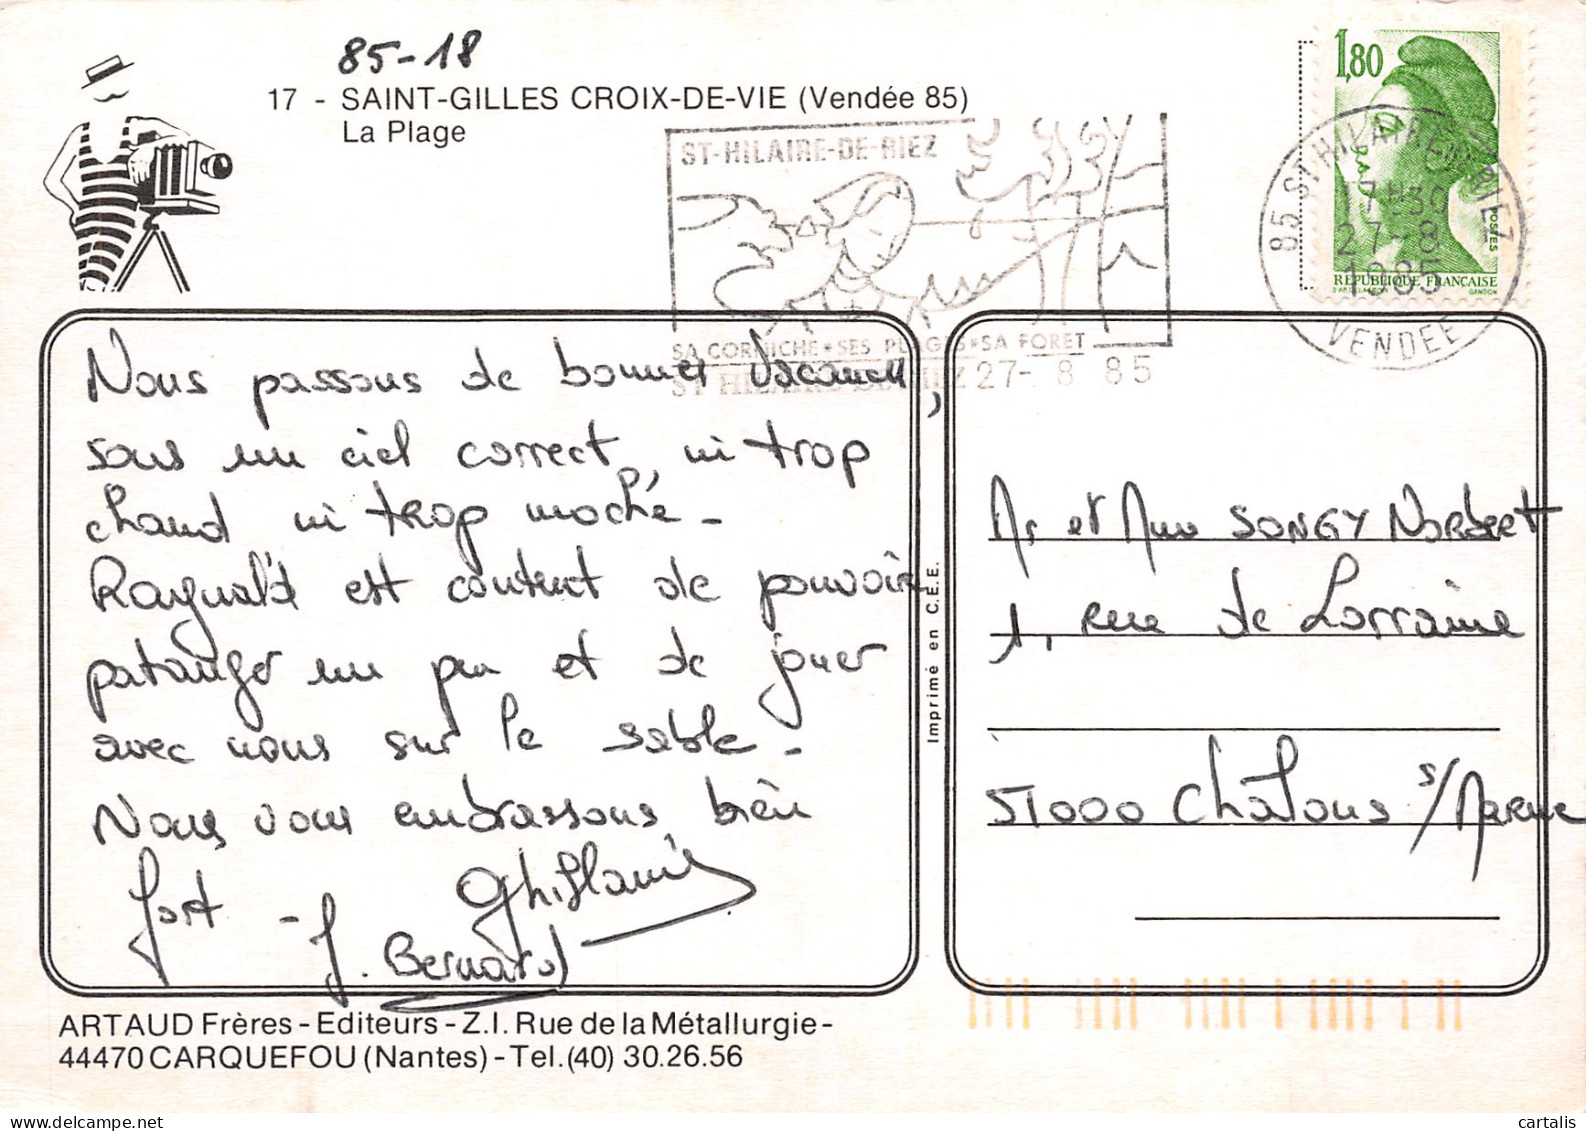 85-18
17 - SAINT-GILLES CROIX-DE-VIE (Vendée 85)
La Plage
ST-HILAIRE-DE-RIEZ
SA CORNICHE * SES PLAGES * SA FORET
ST HILAIRE DE RIEZ 27- 8 85
1,80
POSTES
REPUBLIQUE FRANÇAISE
GANDON
85 ST HILAIRE DE RIEZ
17H30
27-8
1985
VENDEE
Nous passons de bonnes vacances,
sous un ciel correct, ni trop
chaud ni trop moche -
Raynald est content de pouvoir
patauger un peu et de jouer
avec nous sur le sable -
Nous vous embrassons bien
fort - Ghislaine
J. Bernard
Imprimé en C.E.E.
Mr et Mme SONGY Norbert
1, rue de Lorraine
51000 Châlons s/Marne
ARTAUD Frères - Editeurs - Z.I. Rue de la Métallurgie -
44470 CARQUEFOU (Nantes) - Tel. (40) 30.26.56
cartalis